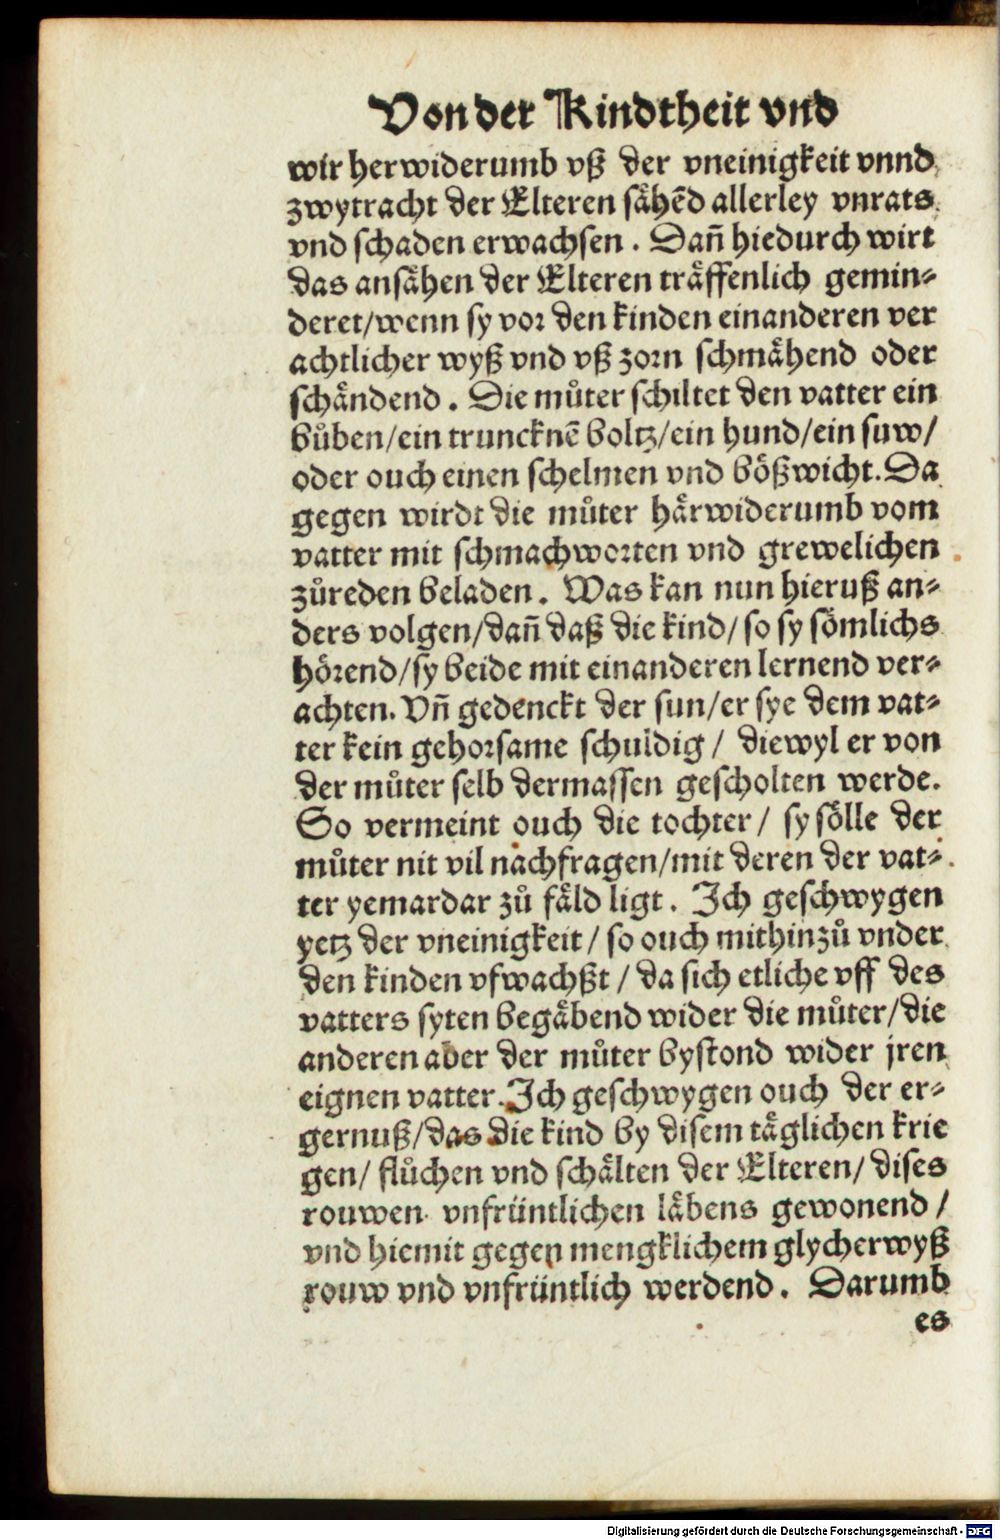 Von der Kindtheit vnd
wir herwiderumb vß der vneinigkeit vnnd
zwytracht der Elteren sähẽd allerley vnrats
vnd schaden erwachsen. Dañ hiedurch wirt
das ansähen der Elteren träffenlich gemin⸗
deret/wenn sy vor den kinden einanderen ver
achtlicher wyß vnd vß zorn schmähend oder
schändend. Die můter schiltet den vatter ein
bůben/ein truncknẽ boltz/ein hund/ein suw/
oder ouch einen schelmen vnd bößwicht. Da
gegen wirdt die můter härwiderumb vom
vatter mit schmachworten vnd grewelichen
zůreden beladen. Was kan nun hieruß an⸗
ders volgen/dañ daß die kind/so sy sömlichs
hörend/sy beide mit einanderen lernend ver⸗
achten. Vñ gedenckt der sun/er sye dem vat⸗
ter kein gehorsame schuldig/ diewyl er von
der můter selb dermassen gescholten werde.
So vermeint ouch die tochter/ sy sölle der
můter nit vil nachfragen/mit deren der vat⸗
ter yemardar zů fäld ligt. Ich geschwygen
yetz der vneinigkeit/ so ouch mithinzů vnder
den kinden vfwachßt/ da sich etliche vff des
vatters syten begäbend wider die můter/die
anderen aber der můter bystond wider jren
eignen vatter. Ich geschwygen ouch der er⸗
gernuß/das die kind by disem täglichen krie
gen/ flůchen vnd schälten der Elteren/ dises
rouwen vnfrüntlichen läbens gewonend/
vnd hiemit gegen mengklichem glycherwyß
rouw vnd vnfrüntlich werdend. Darumb
es
Digitalisierung gefördert durch die Deutsche Forschungsgemeinschaft - DFG